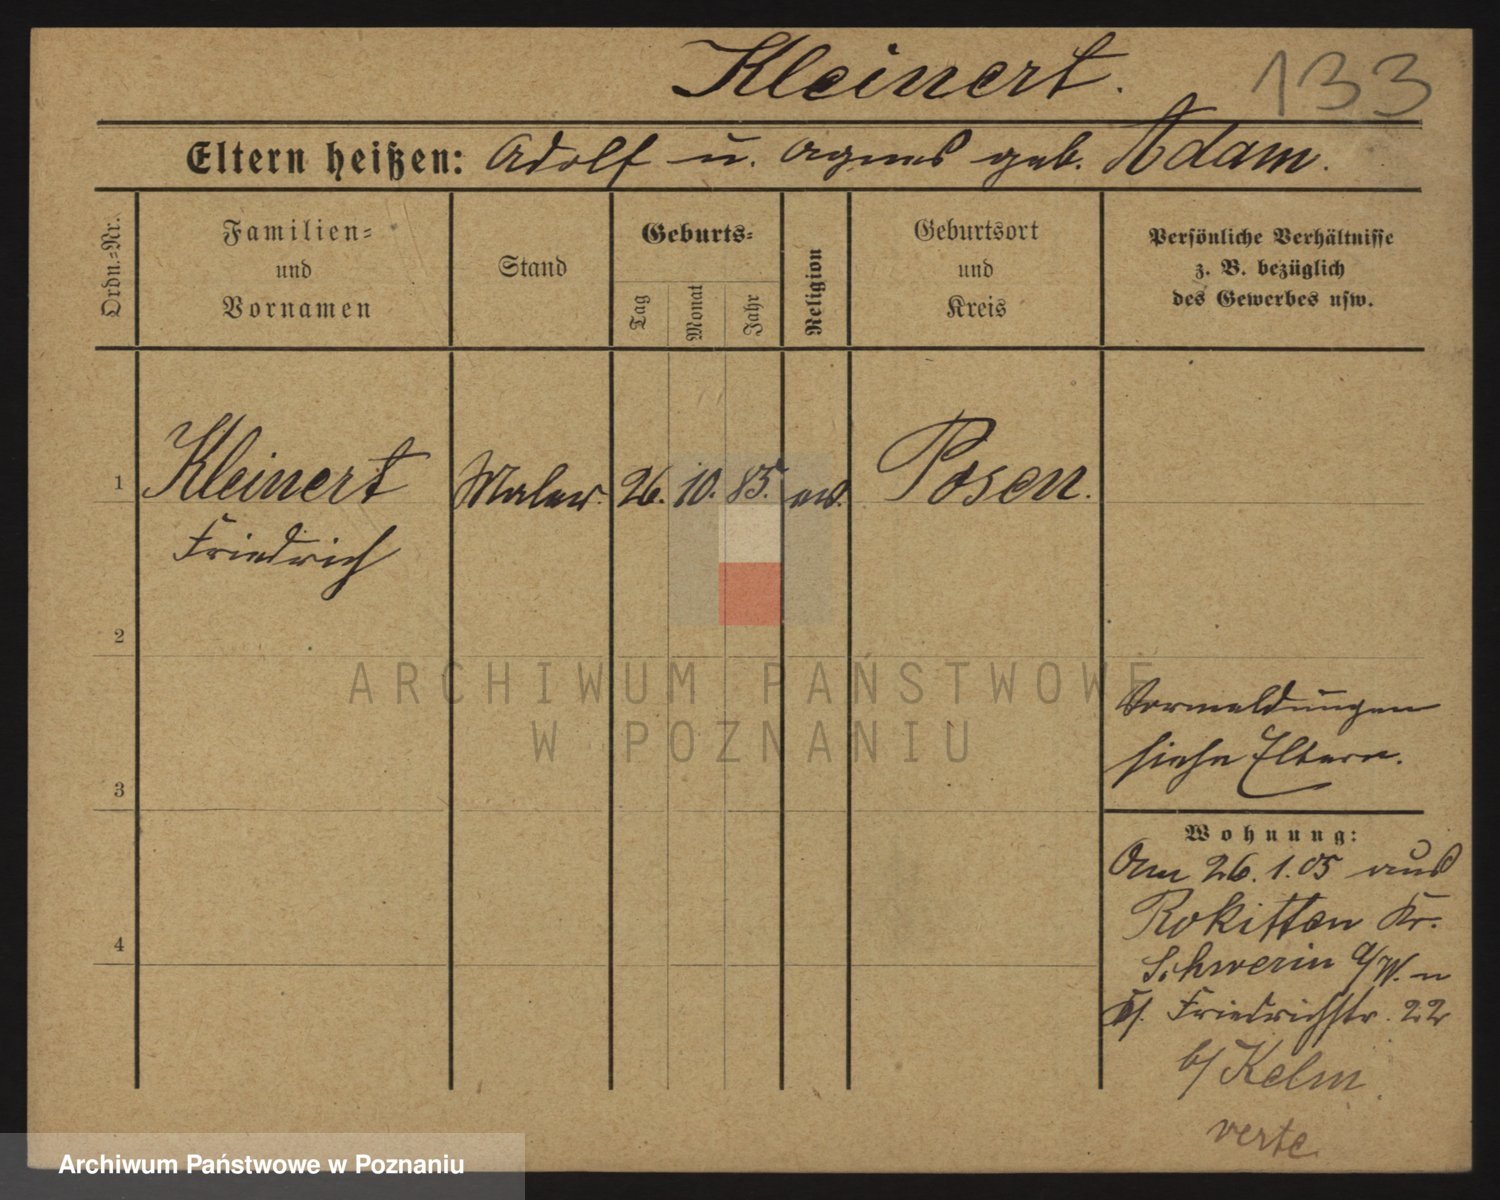 Kleinert. 133
Eltern heißen: Adolf u. Agnes geb. Adam.
Ordn.-Nr.
Familien-
und
Vornamen
Stand
Geburts-
Tag
Monat
Jahr
Religion
Geburtsort
und
Kreis
Persönliche Verhältnisse
z. B. bezüglich
des Gewerbes usw.
1 Kleinert Maler. 26. 10. 85. ev. Posen.
Friedrich
2
3
4
Vormeldungen
siehe Eltern.
Wohnung:
Am 26.1.05 aus
Rokitten Kr.
Schwerin a/W. n
Friedrichstr. 22
b/ Kelm
verte
ARCHIWUM PAŃSTWOWE
W POZNANIU
Archiwum Państwowe w Poznaniu